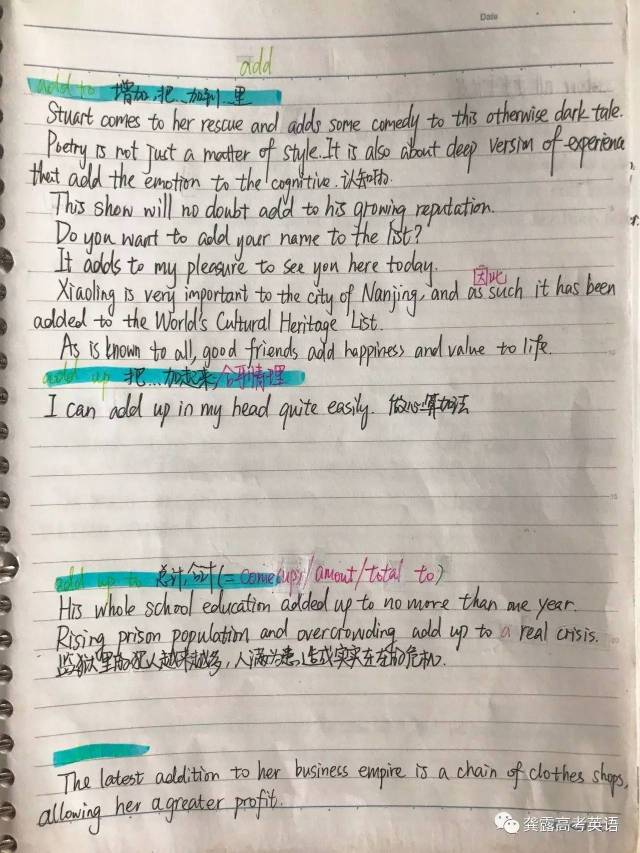 Date
add
add to 增加,把...加到...里
Stuart comes to her rescue and adds some comedy to this otherwise dark tale.
Poetry is not just a matter of style. It is also about deep version of experience
that add the emotion to the cognitive. 认知的
This show will no doubt add to his growing reputation.
Do you want to add your name to the list?
It adds to my pleasure to see you here today.
因此
Xiaoling is very important to the city of Nanjing, and as such it has been
added to the World's Cultural Heritage List.
As is known to all, good friends add happiness and value to life.
add up 把...加起来/合乎情理
I can add up in my head quite easily. 做心算加法
add up to 总计,合计(= come up/amout/total to)
His whole school education added up to no more than one year.
Rising prison population and overcrowding add up to a real crisis.
监狱里的犯人越来越多,人满为患,造成实实在在的危机.
The latest addition to her business empire is a chain of clothes shops,
allowing her a greater profit.
龚露高考英语